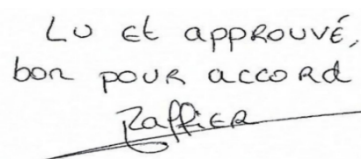 Lu et approuvé,
bon pour accord
Raffier